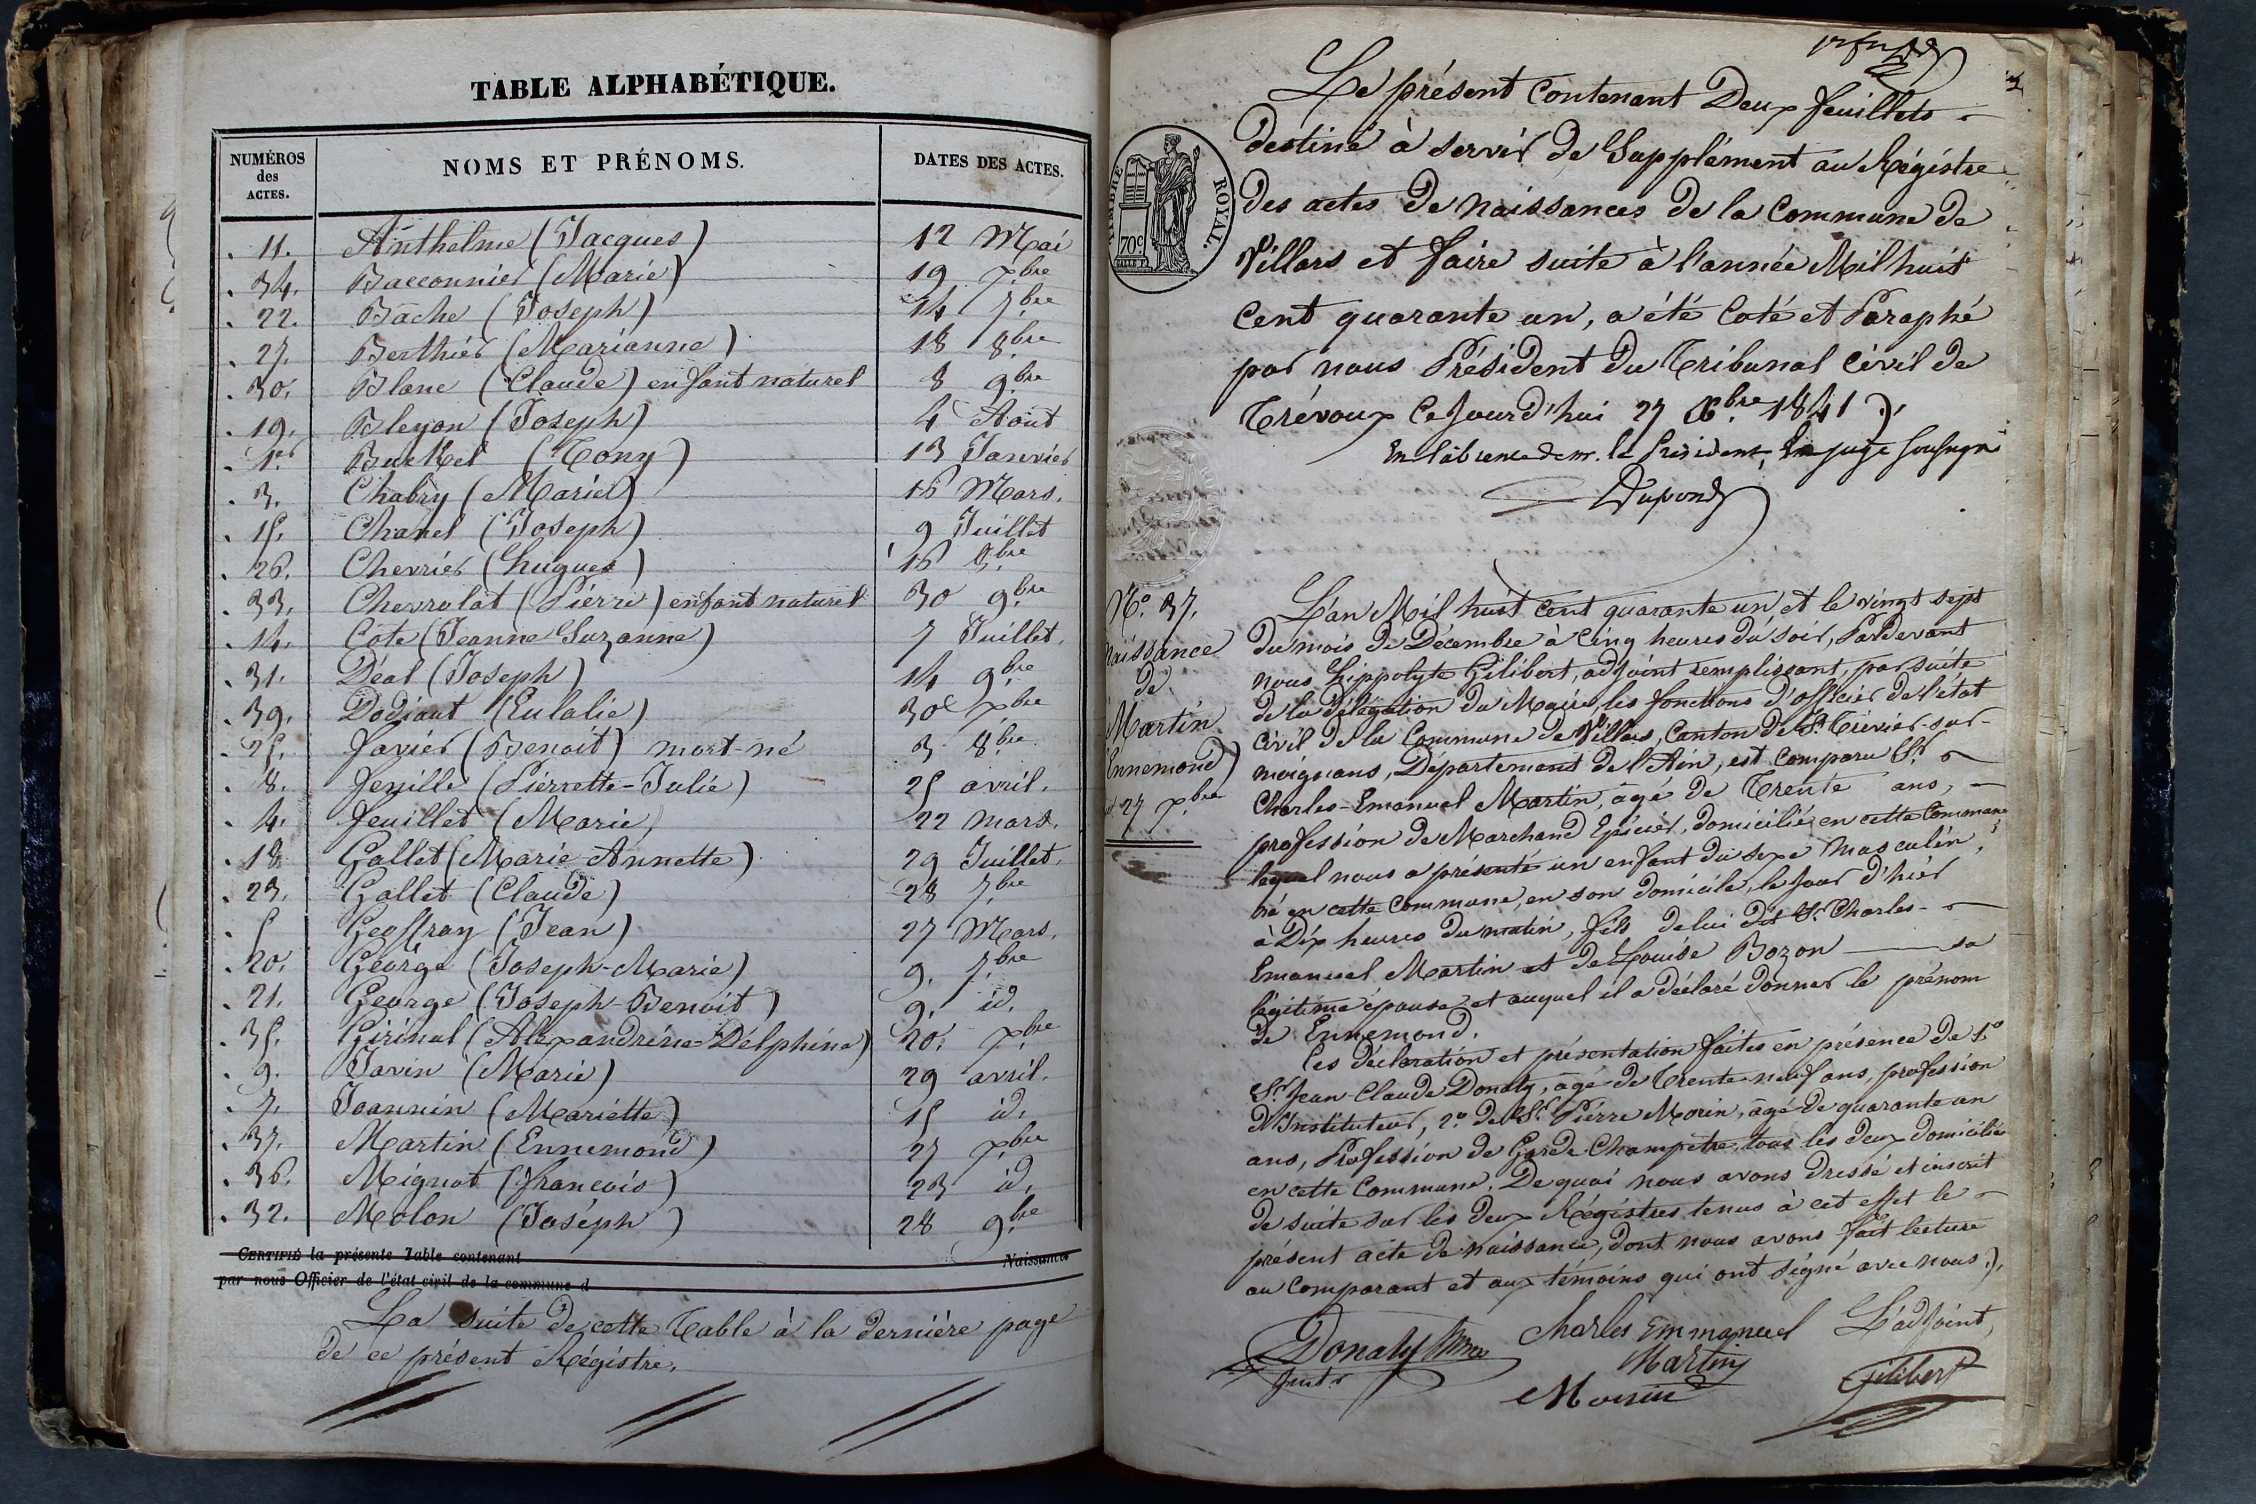 TABLE ALPHABÉTIQUE.
NUMÉROS des ACTES. NOMS ET PRÉNOMS. DATES DES ACTES.
11. Anthelme (Jacques) 12 Mai
34. Bacconnier (Marie) 19 xbre
22. Bâche (Joseph) 14 7bre
27. Berthier (Marianne) 18 8bre
30. Blanc (Claude) enfant naturel 8 9bre
19. Bleyon (Joseph) 4 Août
1er Burkel (Tony) 13 Janvier
3. Chabry (Marie) 16 Mars.
15. Chanel (Joseph) 9 Juillet
26. Chevrier (hugues) 16 8bre
33. Chevrolat (Pierre) enfant naturel 30 9bre
14. Côte (Jeanne Suzanne) 7 Juillet.
31. Déal (Joseph) 14 9bre
39. Dodiaut (Eulalie) 30 xbre
25. favier (Benoit) mort-né 3 8bre
8. feuille (Pierrette-Julie) 25 avril.
4. feuillet (Marie) 22 mars.
18 Gallet (Marie Annette) 29 Juillet.
23. Gallet (Claude) 28 7bre
5 Geoffray (Jean) 27 Mars.
20. George (Joseph-Marie) 9. 7bre
21. George (Joseph-Benoit) 9. id.
35. Girinal (Alexandrine-Délphine) 20. xbre
9. Javin (Marie) 29 avril.
7. Joannin (Mariette) 15 id.
37. Martin (Ennemond) 27 xbre
36. Mignot (françois) 23 id.
32. Molon (Joséph) 28 9bre
CERTIFIÉ la présente Table contenant Naissances
par nous Officier de l'état civil de la commune d
La suite de cette Table à la dernière page
de ce présent Régistre.
TIMBRE ROYAL.
70c
Le présent contenant Deux feuillets
destiné à servir de Supplément au Régistre
des actes de naissances de la commune de
Villars et faire suite à l'année Mil huit
cent quarante un, a été Coté et Paraphé
par nous Président du Tribunal civil de
Trévoux Ce Jourd'hui 27 Xbre 1841
En l'absence de mr. le President, Un juge soussigné
Dupond
No. 37.
Naissance
de
Martin
Ennemond)
27 xbre
L'an Mil huit cent quarante un et le vingt sept
du mois de Décembre à cinq heures du soir, Pardevant
nous hippolyte Gilibert, adjoint remplissant, par suite
de la délégation du Maire, les fonctions d'officier de l'état
civil de la Commune de Villars, Canton de St. Trivier-sur-
moignans, Département de l'Ain, est comparu Sr.
Charles-Emanuel Martin, âgé de Trente ans,
profession de Marchand Epicier, domicilié en cette Commune
lequel nous a présenté un enfant du sexe Masculin,
né en cette commune, en son domicile, le jour d'hier
à Dix heures du matin, fils de lui dit Sr. Charles-
Emanuel Martin et de Louise Bozon sa
légitime épouse, et auquel il a déclaré donner le prénom
de Ennemond.
Ces déclaration et présentation faites en présence de 1o
Sr. Jean-Claude Donaty, âgé de Trente neuf ans, profession
d'Instituteur, 2o. de Sr. Pierre Morin, âgé de quarante un
ans, Profession de Garde Champêtre, tous les deux domiciliés
en cette Commune. De quoi nous avons dressé et inscrit
de suite sur les deux Régistres tenus à cet effet le
présent acte de naissance, dont nous avons fait lecture
au Comparant et aux témoins qui ont signé avec nous.
Donaty Charles Emmanuel L'adjoint,
Martin
Morin Gilibert